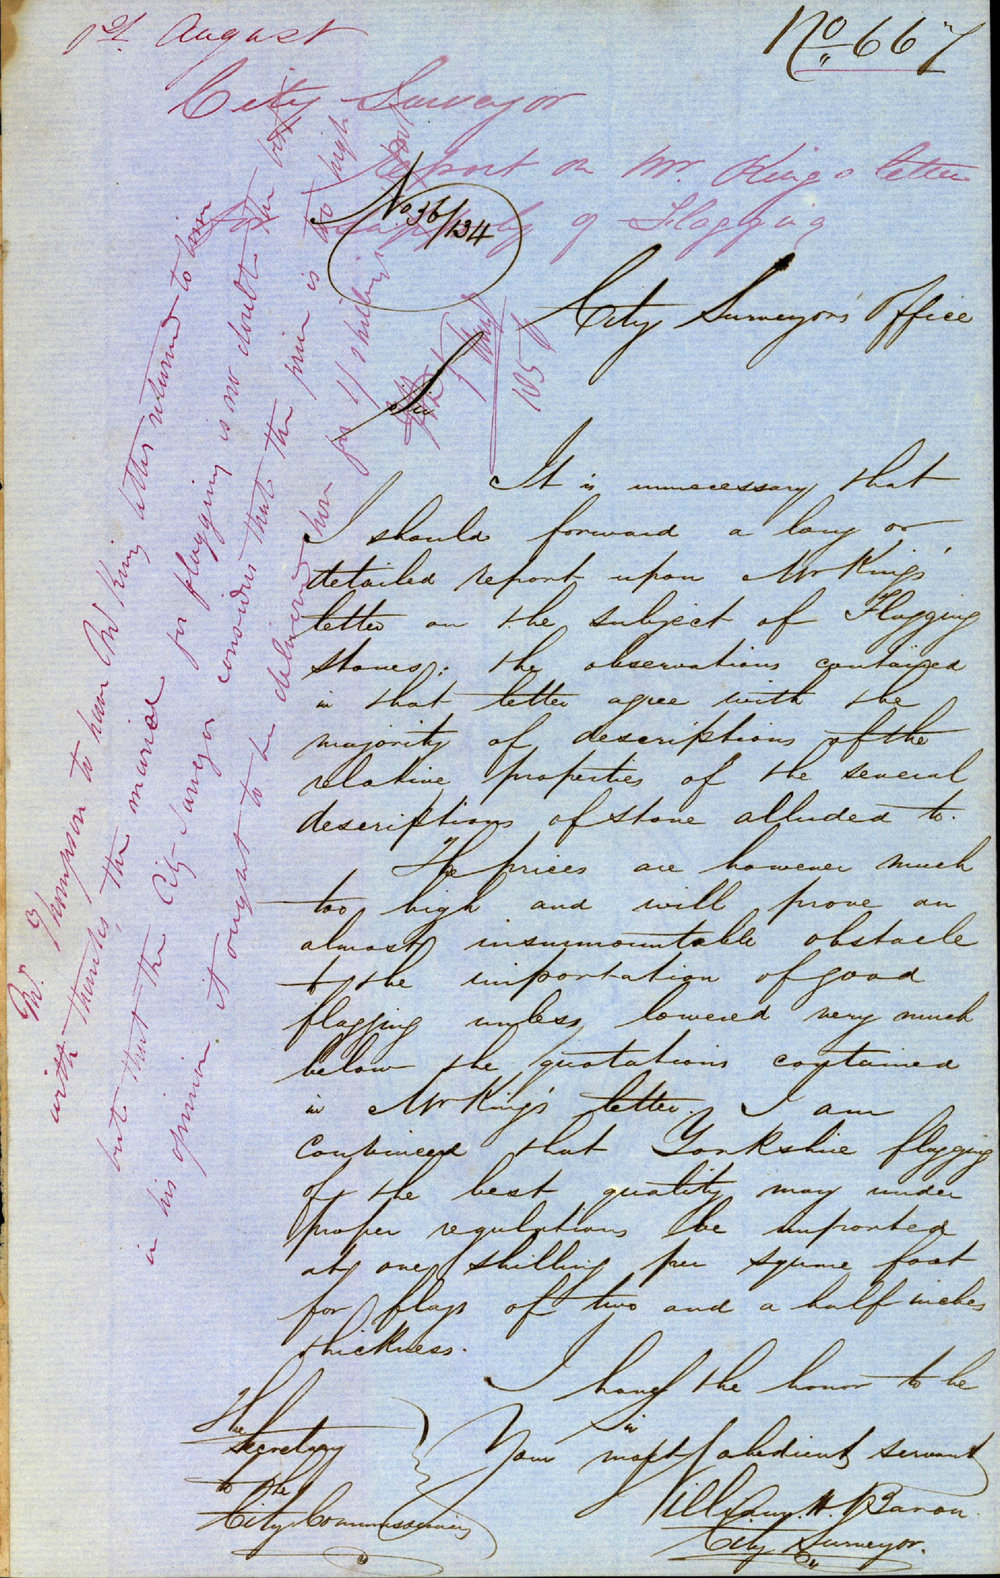 1st. August
No. 667
City Surveyor
Report on Mr. King's letter
for supply of Flagging
No 36/134
City Surveyor's Office
Sir
It is unnecessary that
I should forward a long or
detailed report upon Mr King's
letter on the subject of Flagging
stones; the observations contained
in that letter agree with the
majority of descriptions of the
relative properties of the several
descriptions of stone alluded to.
The prices are however much
too high and will prove an
almost insurmountable obstacle
to the importation of good
flagging unless lowered very much
below the quotations contained
in Mr King's letter. I am
convinced that Yorkshire flagging
of the best quality may under
proper regulations be imported
at one shilling per square foot
for flags of two and a half inches
thickness.
I have the honor to be
Sir
Your most obedient servant
William. H. Baron.
City Surveyor.
The
Secretary
to the
City Commissioners
Mr. Thompson to have Mr King letter returned to him
with thanks, the material for flagging is no doubt the best
but that the City Surveyor considers that the price is too high
in his opinion it ought to be delivered here for 1/ shilling per
185